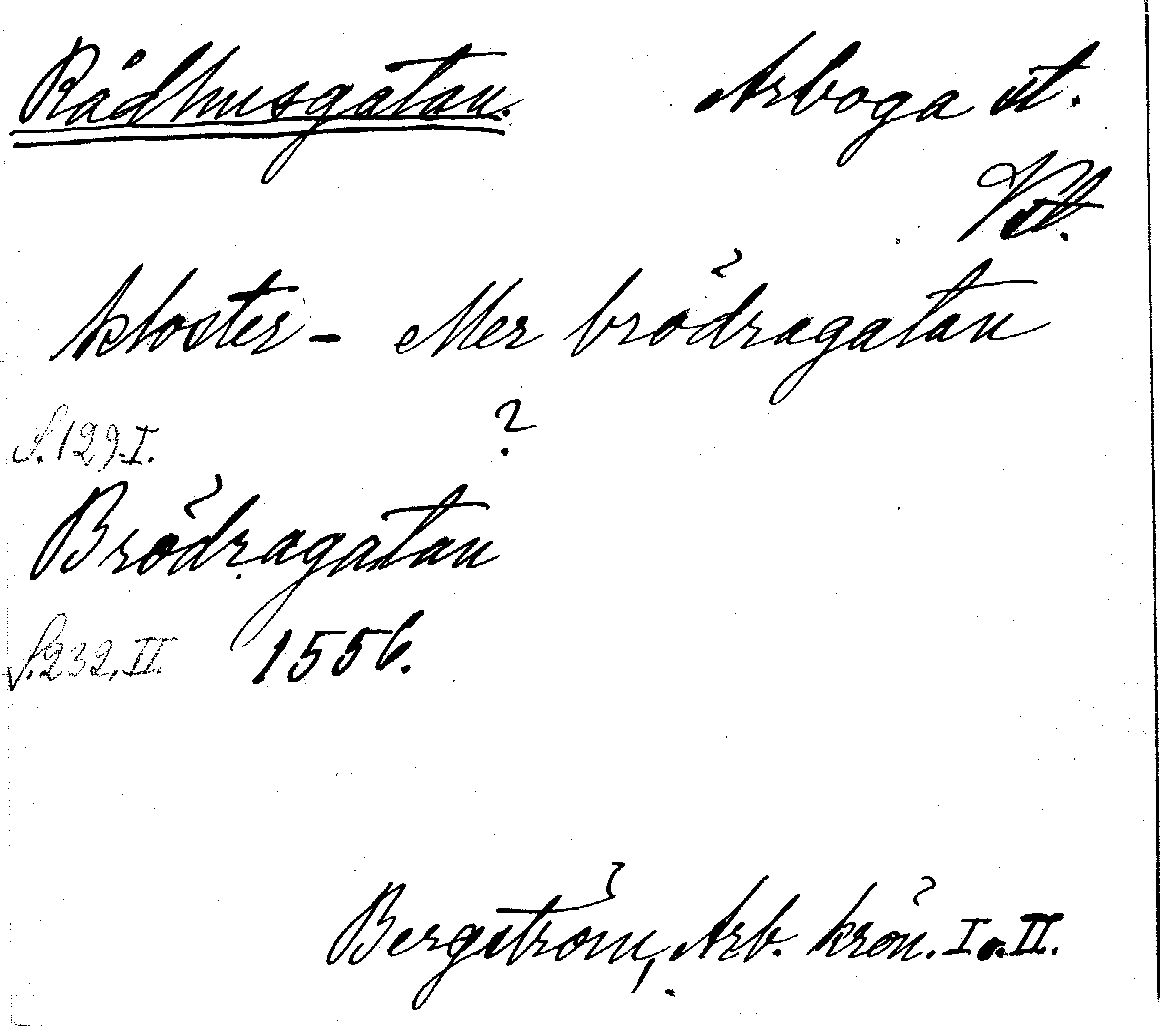 Rådhusgatan. Arboga st.
Vstm.
kloster- eller brödragatan
S. 129. I. ?
Brödragatan
S. 232, II. 1556.
Bergström, Arb. krön. I o. II.